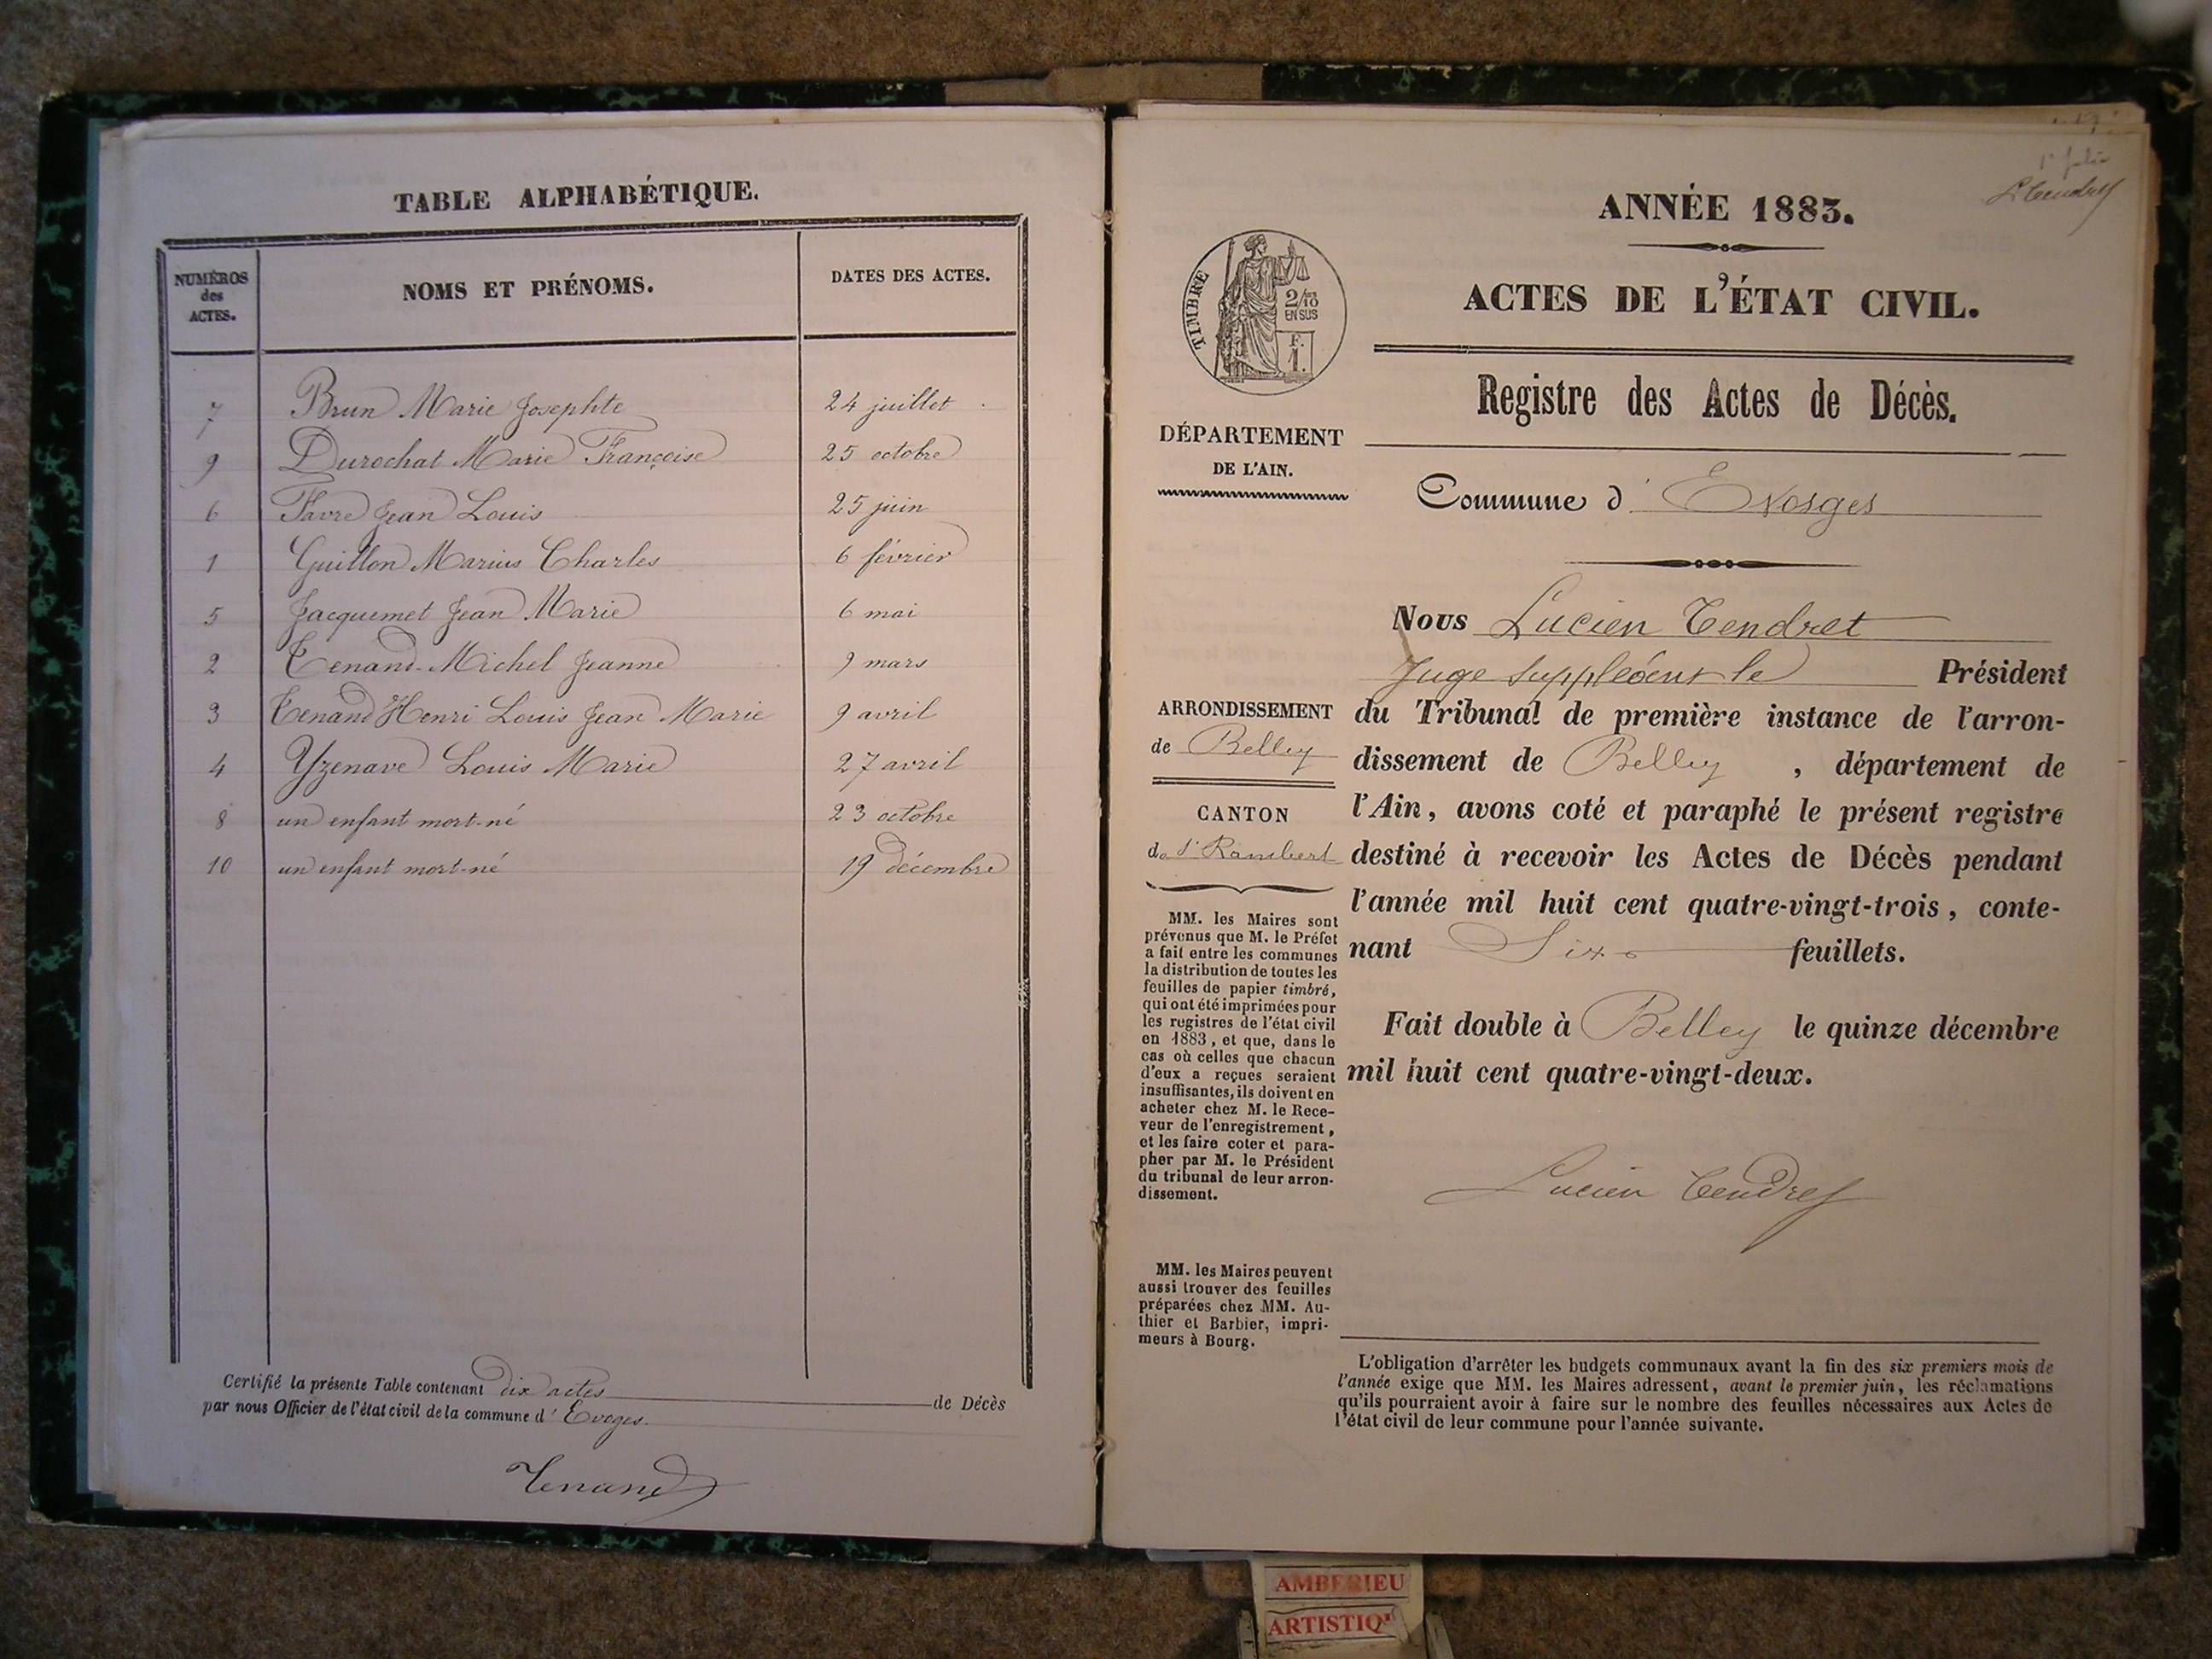 TABLE ALPHABÉTIQUE.
NUMÉROS des ACTES. NOMS ET PRÉNOMS. DATES DES ACTES.
7 Brun Marie Josephte 24 juillet
9 Durochat Marie Françoise 25 octobre
6 Favre Jean Louis 25 juin
1 Guillon Marius Charles 6 février
5 Jacquemet Jean Marie 6 mai
2 Tenand-Michel Jeanne 9 mars
3 Tenand Henri Louis Jean Marie 9 avril
4 Yzenave Louis Marie 27 avril
8 un enfant mort-né 23 octobre
10 un enfant mort-né 19 décembre
Certifié la présente Table contenant dix actes de Décès
par nous Officier de l'état civil de la commune d' Evoges.
Tenand
L. Tendret
ANNÉE 1883.
ACTES DE L'ÉTAT CIVIL.
TIMBRE
2/10
EN SUS
F.
1.
Registre des Actes de Décès.
DÉPARTEMENT
DE L'AIN.
Commune d' Evosges
Nous Lucien Tendret
Juge suppléant le Président
du Tribunal de première instance de l'arron-
dissement de Belley, département de
l'Ain, avons coté et paraphé le présent registre
destiné à recevoir les Actes de Décès pendant
l'année mil huit cent quatre-vingt-trois, conte-
nant Six feuillets.
Fait double à Belley le quinze décembre
mil huit cent quatre-vingt-deux.
Lucien Tendret
ARRONDISSEMENT
de Belley
CANTON
de St Rambert
MM. les Maires sont
prévenus que M. le Préfet
a fait entre les communes
la distribution de toutes les
feuilles de papier timbré,
qui ont été imprimées pour
les registres de l'état civil
en 1883, et que, dans le
cas où celles que chacun
d'eux a reçues seraient
insuffisantes, ils doivent en
acheter chez M. le Rece-
veur de l'enregistrement,
et les faire coter et para-
pher par M. le Président
du tribunal de leur arron-
dissement.
MM. les Maires peuvent
aussi trouver des feuilles
préparées chez MM. Au-
thier et Barbier, impri-
meurs à Bourg.
L'obligation d'arrêter les budgets communaux avant la fin des six premiers mois de
l'année exige que MM. les Maires adressent, avant le premier juin, les réclamations
qu'ils pourraient avoir à faire sur le nombre des feuilles nécessaires aux Actes de
l'état civil de leur commune pour l'année suivante.
AMBERIEU
ARTISTIQ